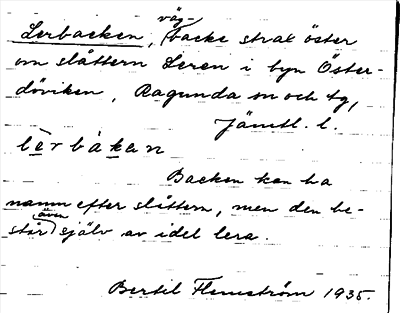 Lerbacken, väg-backe strax öster
om slåttern Leren i byn Öster-
döviken, Ragunda sn och tg,
Jämtl. l.
lèrbàkan
Backen kan ha
namn efter slåttern, men den be-
står även själv av idel lera.
Bertil Flemström 1935.